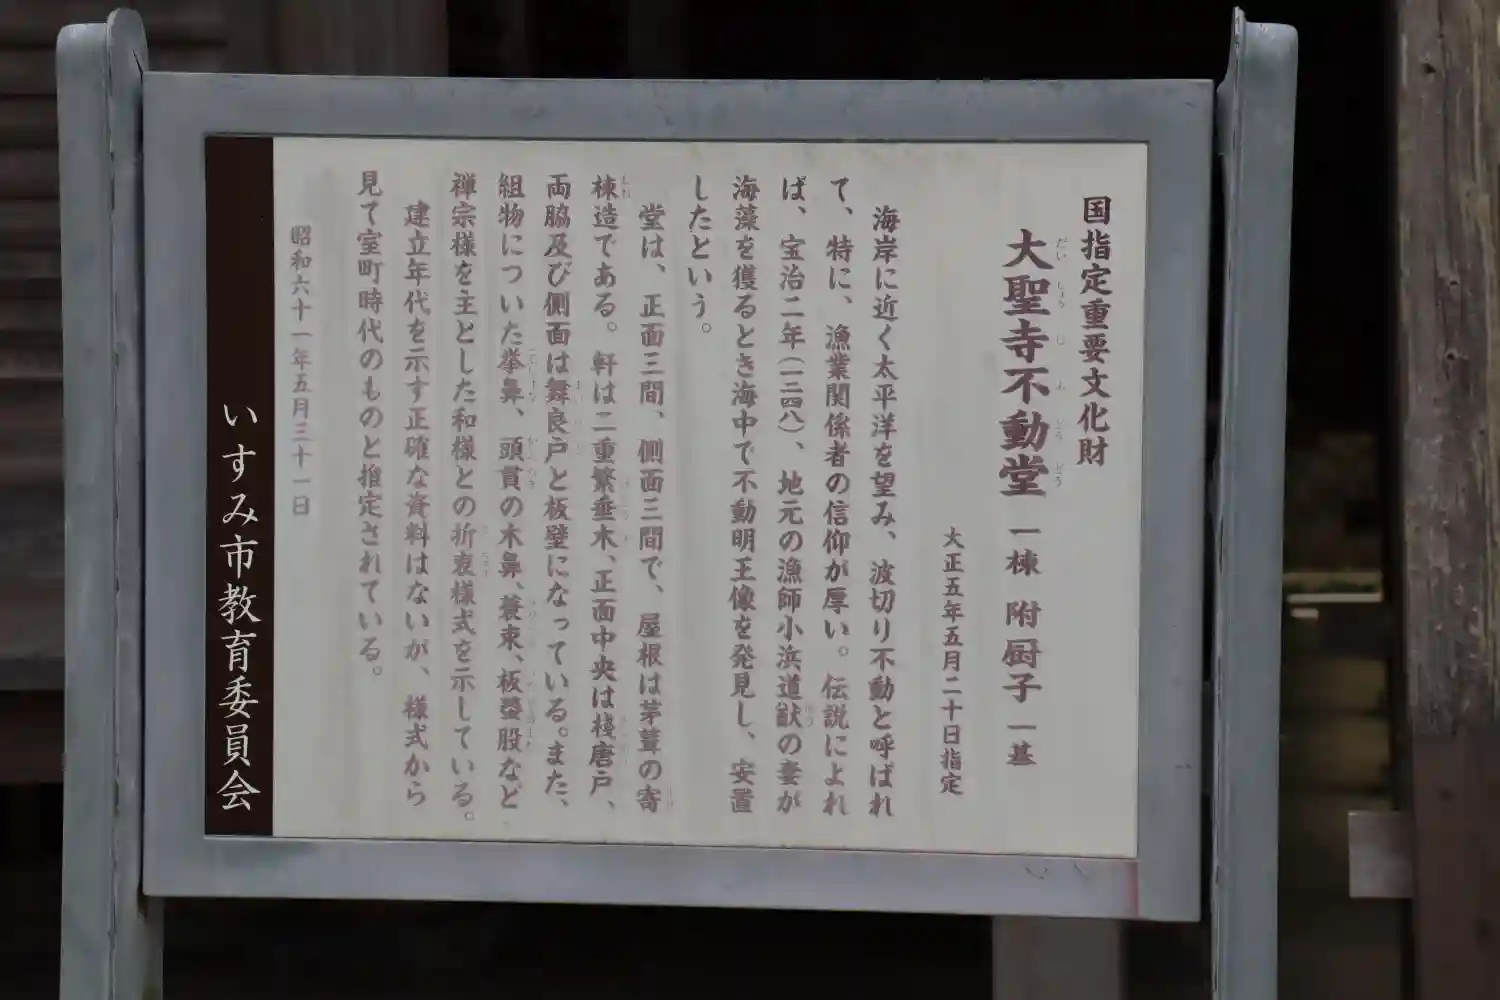 国指定重要文化財
大聖寺不動堂 一棟 附厨子 一基
大正五年五月二十日指定
海岸に近く太平洋を望み、波切り不動と呼ばれ
て、特に、漁業関係者の信仰が厚い。伝説によれ
ば、宝治二年(一二四八)、地元の漁師小浜道猷の妻が
海藻を獲るとき海中で不動明王像を発見し、安置
したという。
堂は、正面三間、側面三間で、屋根は茅葺の寄
棟造である。軒は二重繁垂木、正面中央は棧唐戸、
両脇及び側面は舞良戸と板壁になっている。また、
組物についた拳鼻、頭貫の木鼻、蓑束、板蟇股など
禅宗様を主とした和様との折衷様式を示している。
建立年代を示す正確な資料はないが、様式から
見て室町時代のものと推定されている。
昭和六十一年五月三十一日
いすみ市教育委員会